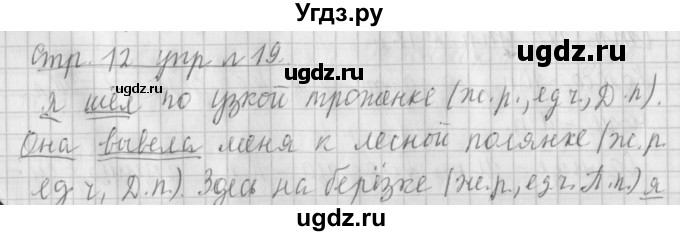 Угдз.ру
Стр. 12 упр №19.
Я шёл по узкой тропинке (ж.р., ед ч, Д.п).
Она вывела меня к лесной полянке (ж.р.
ед ч, Д.п.). Здесь на берёзке (ж.р., ед.ч. П.п.) я
uдgdz.ru
uдgdz.ru
uдgdz.ru
uдgdz.ru